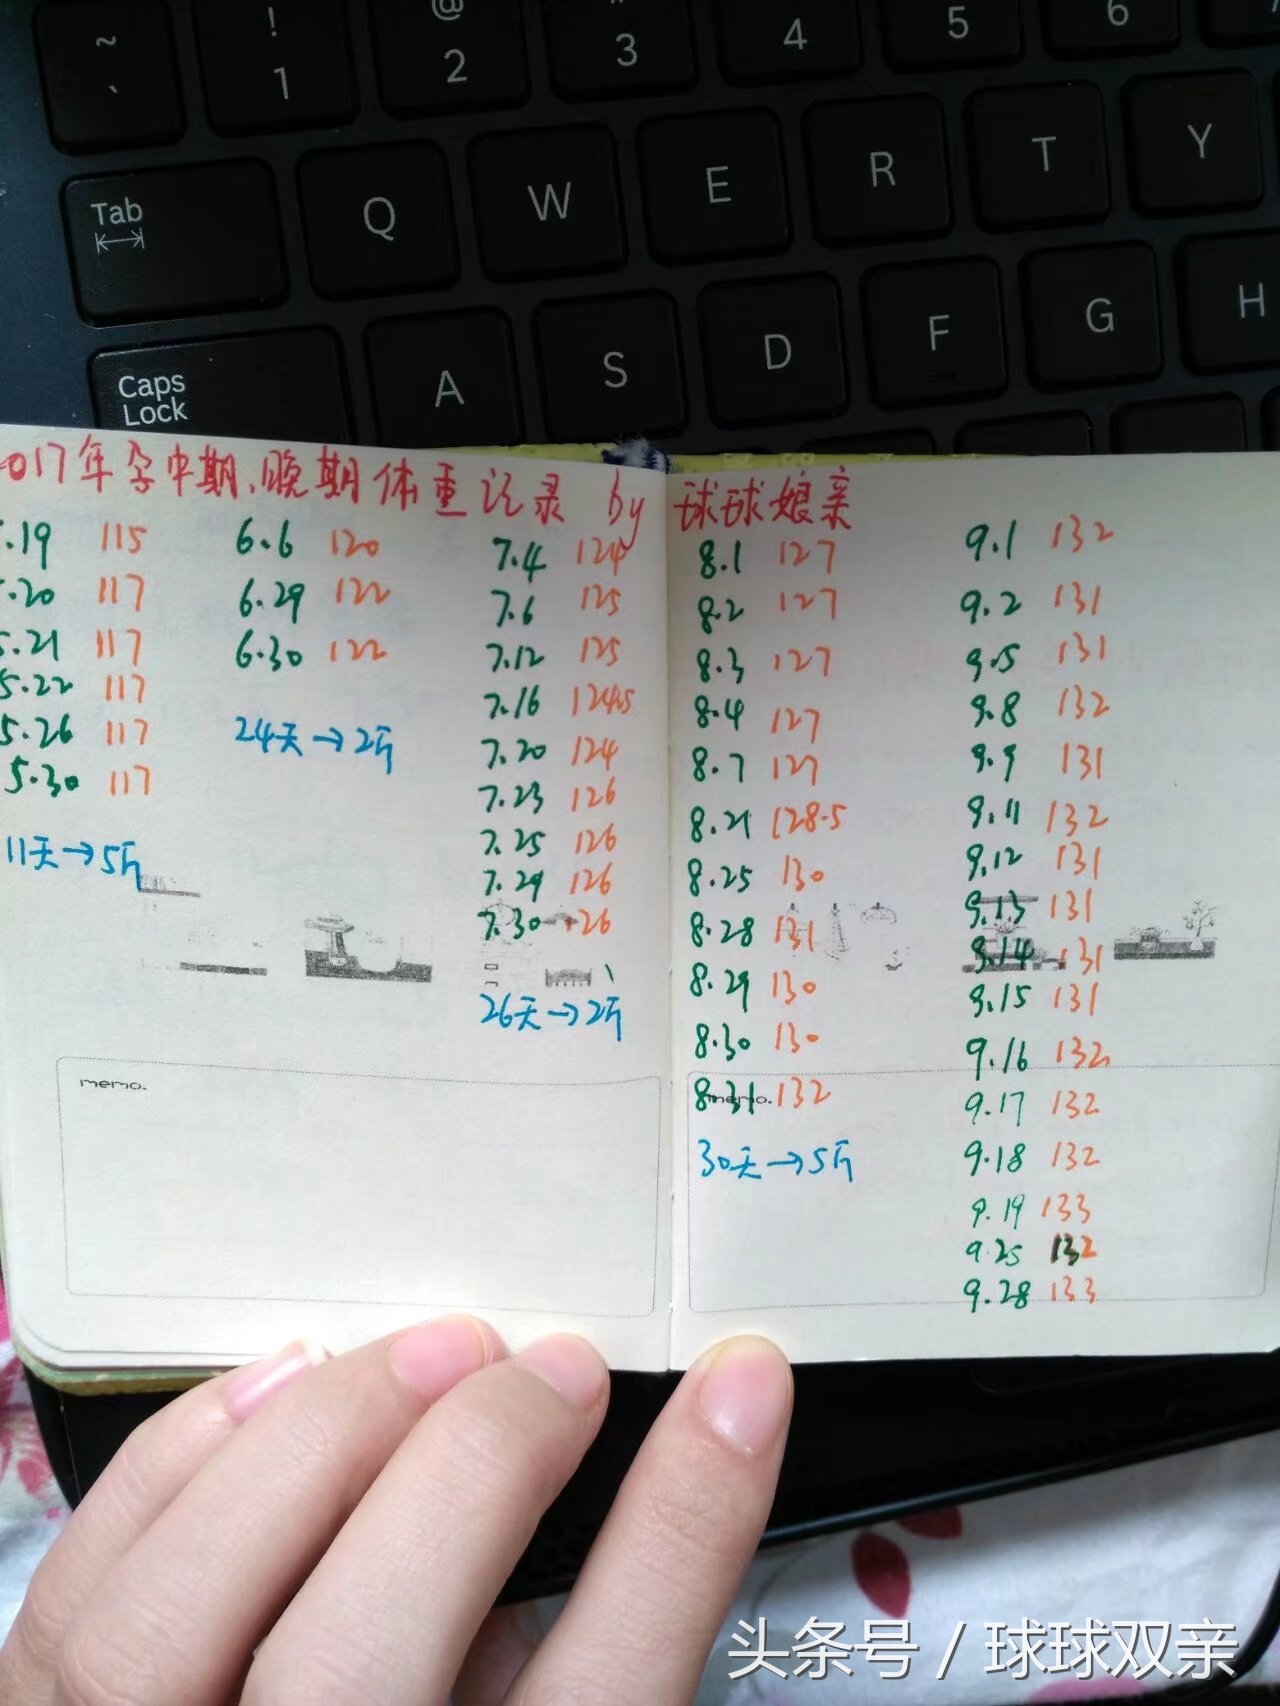 ~ ! @ 3 4 5 6
` 1 2
Tab Q W E R T Y
Caps Lock A S D F G H
017年孕中期、晚期体重记录 by 球球娘亲
.19 115
.20 117
5.21 117
5.22 117
5.26 117
5.30 117
11天→5斤
6.6 120
6.29 122
6.30 122
24天→2斤
7.4 124
7.6 125
7.12 125
7.16 124.5
7.20 124
7.23 126
7.25 126
7.29 126
7.30 126
26天→2斤
memo.
8.1 127
8.2 127
8.3 127
8.4 127
8.7 127
8.21 128.5
8.25 130
8.28 131
8.29 130
8.30 130
8.31 132
memo.
30天→5斤
9.1 132
9.2 131
9.5 131
9.8 132
9.9 131
9.11 132
9.12 131
9.13 131
9.14 131
9.15 131
9.16 132
9.17 132
9.18 132
9.19 133
9.25 132
9.28 133
头条号 / 球球双亲